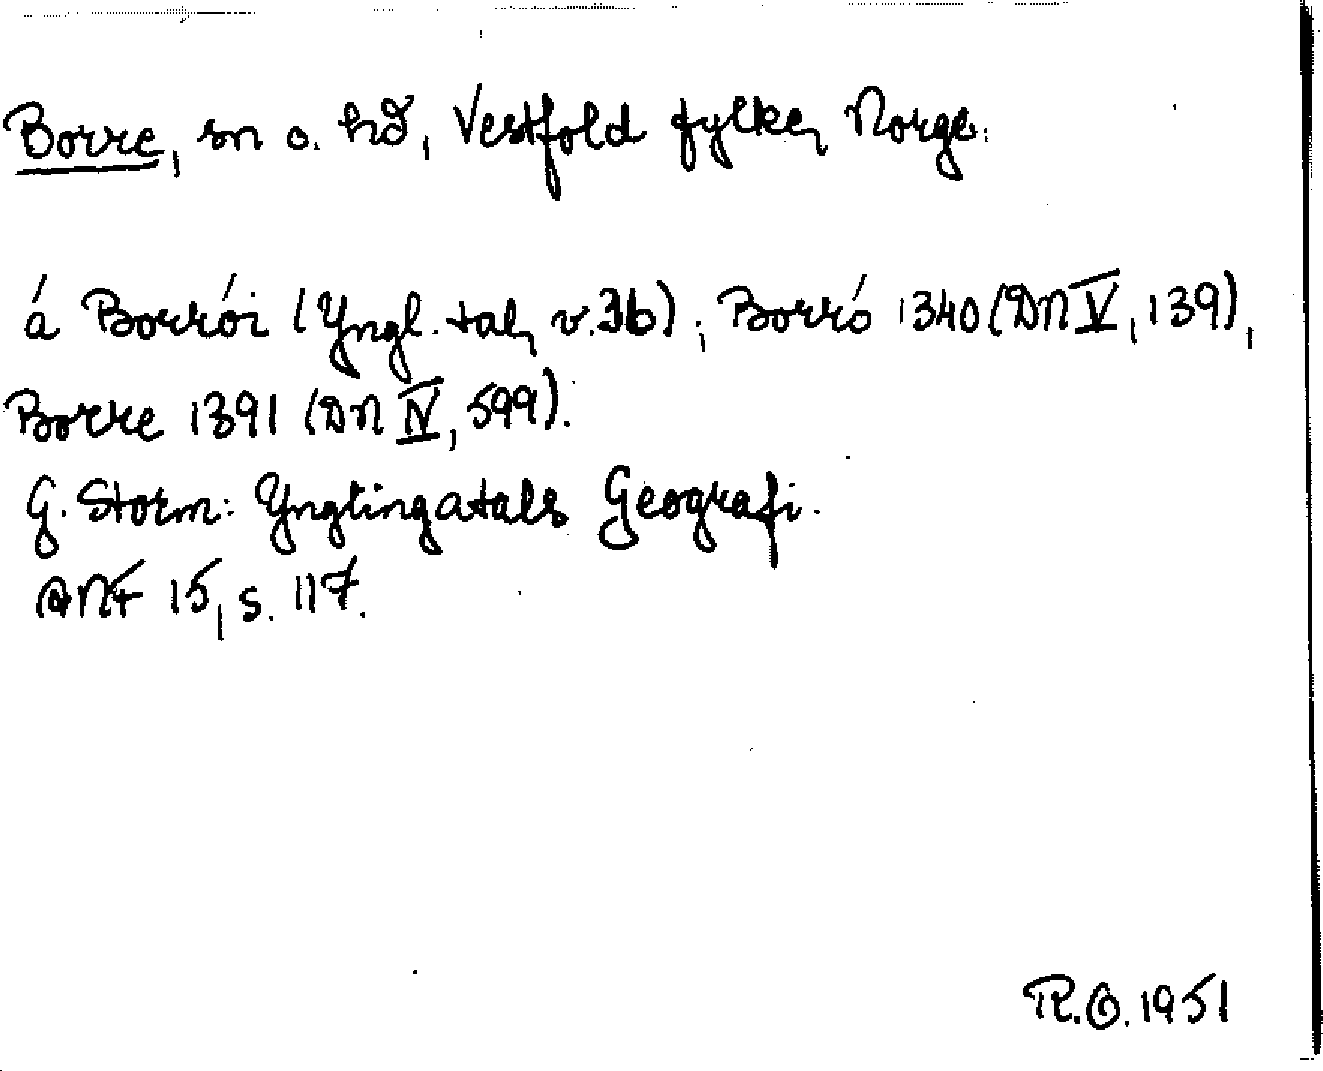 Borre, sn o. hd, Vestfold fylke, Norge.
á Borrói (Yngl. tal, v. 36); Borró 1340 (DN V, 139),
Borre 1391 (DN IV, 599).
G. Storm: Ynglingatals Geografi.
ANF 15, s. 117.
R.O. 1951